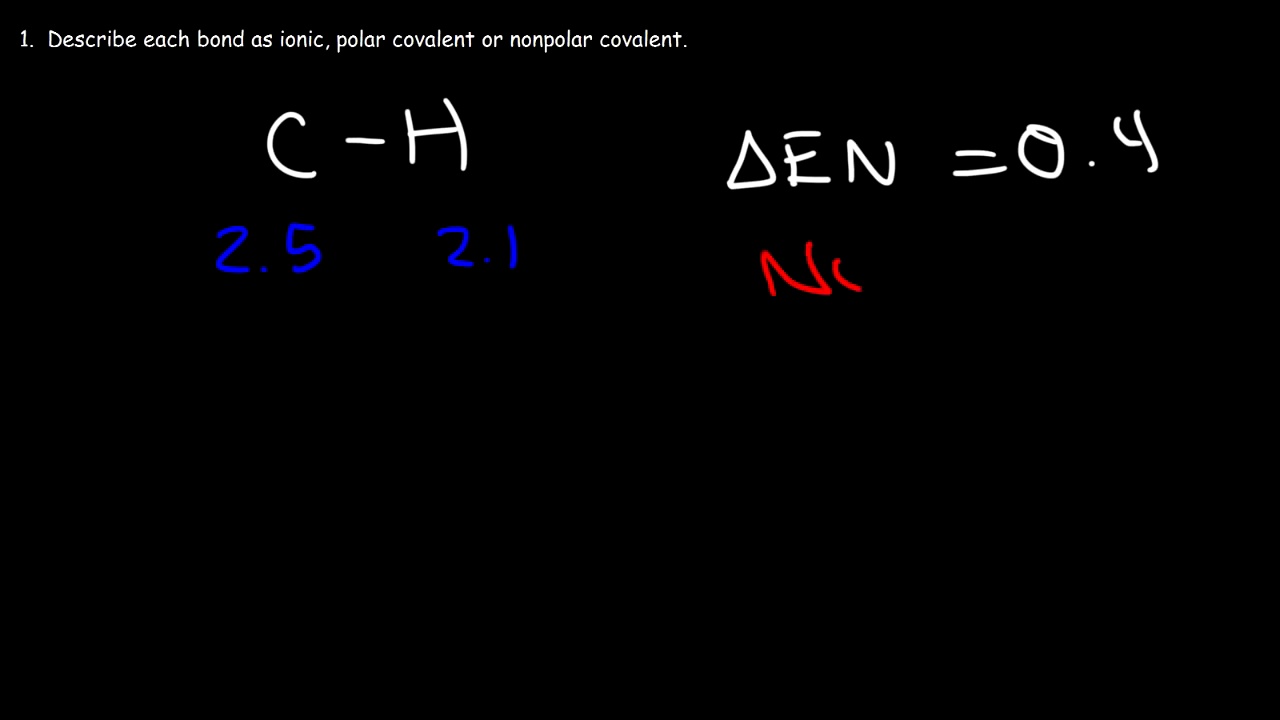 1. Describe each bond as ionic, polar covalent or nonpolar covalent.
C - H
ΔEN = 0.4
2.5 2.1
No